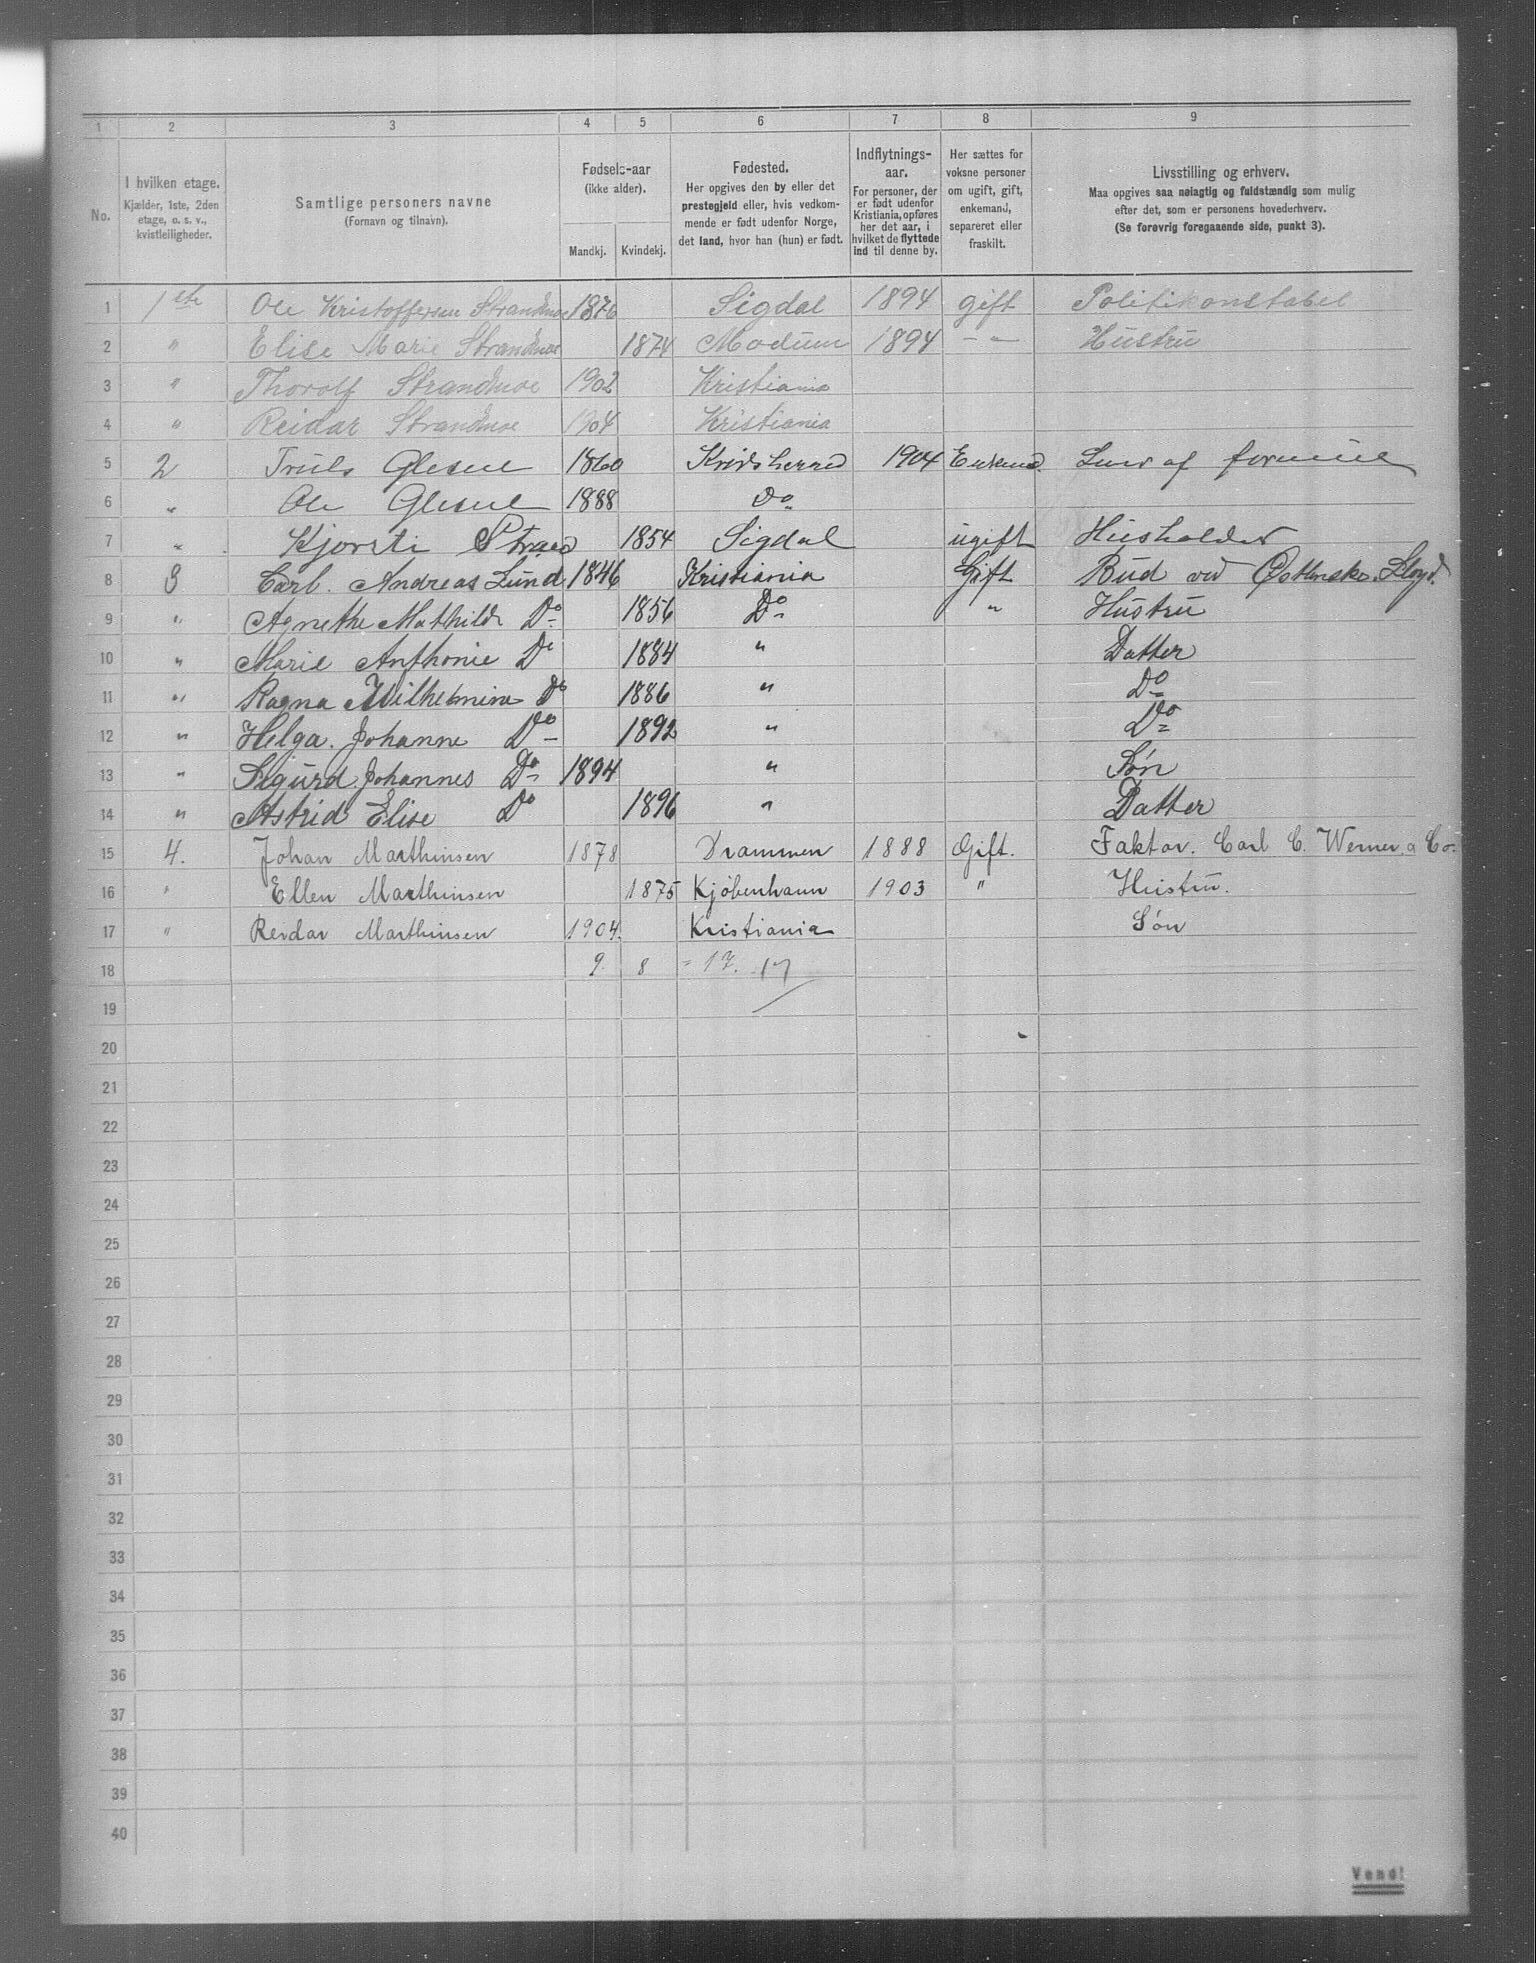 1 2 3 4 5 6 7 8 9
No.
I hvilken etage.
Kjælder, 1ste, 2den
etage, o. s. v.,
kvistleiligheder.
Samtlige personers navne
(Fornavn og tilnavn).
Fødsels-aar
(ikke alder).
Mandkj. Kvindekj.
Fødested.
Her opgives den by eller det
prestegjeld eller, hvis vedkom-
mende er født udenfor Norge,
det land, hvor han (hun) er født.
Indflytnings-
aar.
For personer, der
er født udenfor
Kristiania, opføres
her det aar, i
hvilket de flyttede
ind til denne by.
Her sættes for
voksne personer
om ugift, gift,
enkemand,
separeret eller
fraskilt.
Livsstilling og erhverv.
Maa opgives saa nøiagtig og fuldstændig som mulig
efter det, som er personens hovederhverv.
(Se forøvrig foregaaende side, punkt 3).
1 1ste Ole Kristoffersen Strandmoe 1876 Sigdal 1894 gift Politikonstabel
2 " Elise Marie Strandmoe 1874 Modum 1894 - " - Hustru
3 " Thorolf Strandmoe 1902 Kristiania
4 " Reidar Strandmoe 1904 Kristiania
5 2 Truls Glesne 1860 Krødsherred 1904 Enkemd. Lever af formue
6 " Ole Glesne 1888 Do
7 " Kjersti 1854 Sigdal ugift Husholder
8 3 Carl. Andreas Lund 1846 Kristiania Gift Bud ved Lloyd.
9 " Agnethe Mathilde Do 1856 Do " Hustru
10 " Marie Anthonie Do 1884 " Datter
11 " Ragna Wilhelmine Do 1886 " Do
12 " Helga. Johanne Do 1892 " Do
13 " Sigurd Johannes Do 1894 " Søn
14 " Astrid Elise Do 1896 " Datter
15 4. Johan Marthinsen 1878 Drammen 1888 Gift. Faktor. Carl C. Werner & Co.
16 " Ellen Marthinsen 1875 Kjøbenhavn 1903 " Hustru.
17 " Reidar Marthinsen 1904. Kristiania Søn
18 9. 8 = 17. 17
19
20
21
22
23
24
25
26
27
28
29
30
31
32
33
34
35
36
37
38
39
40
Vend!